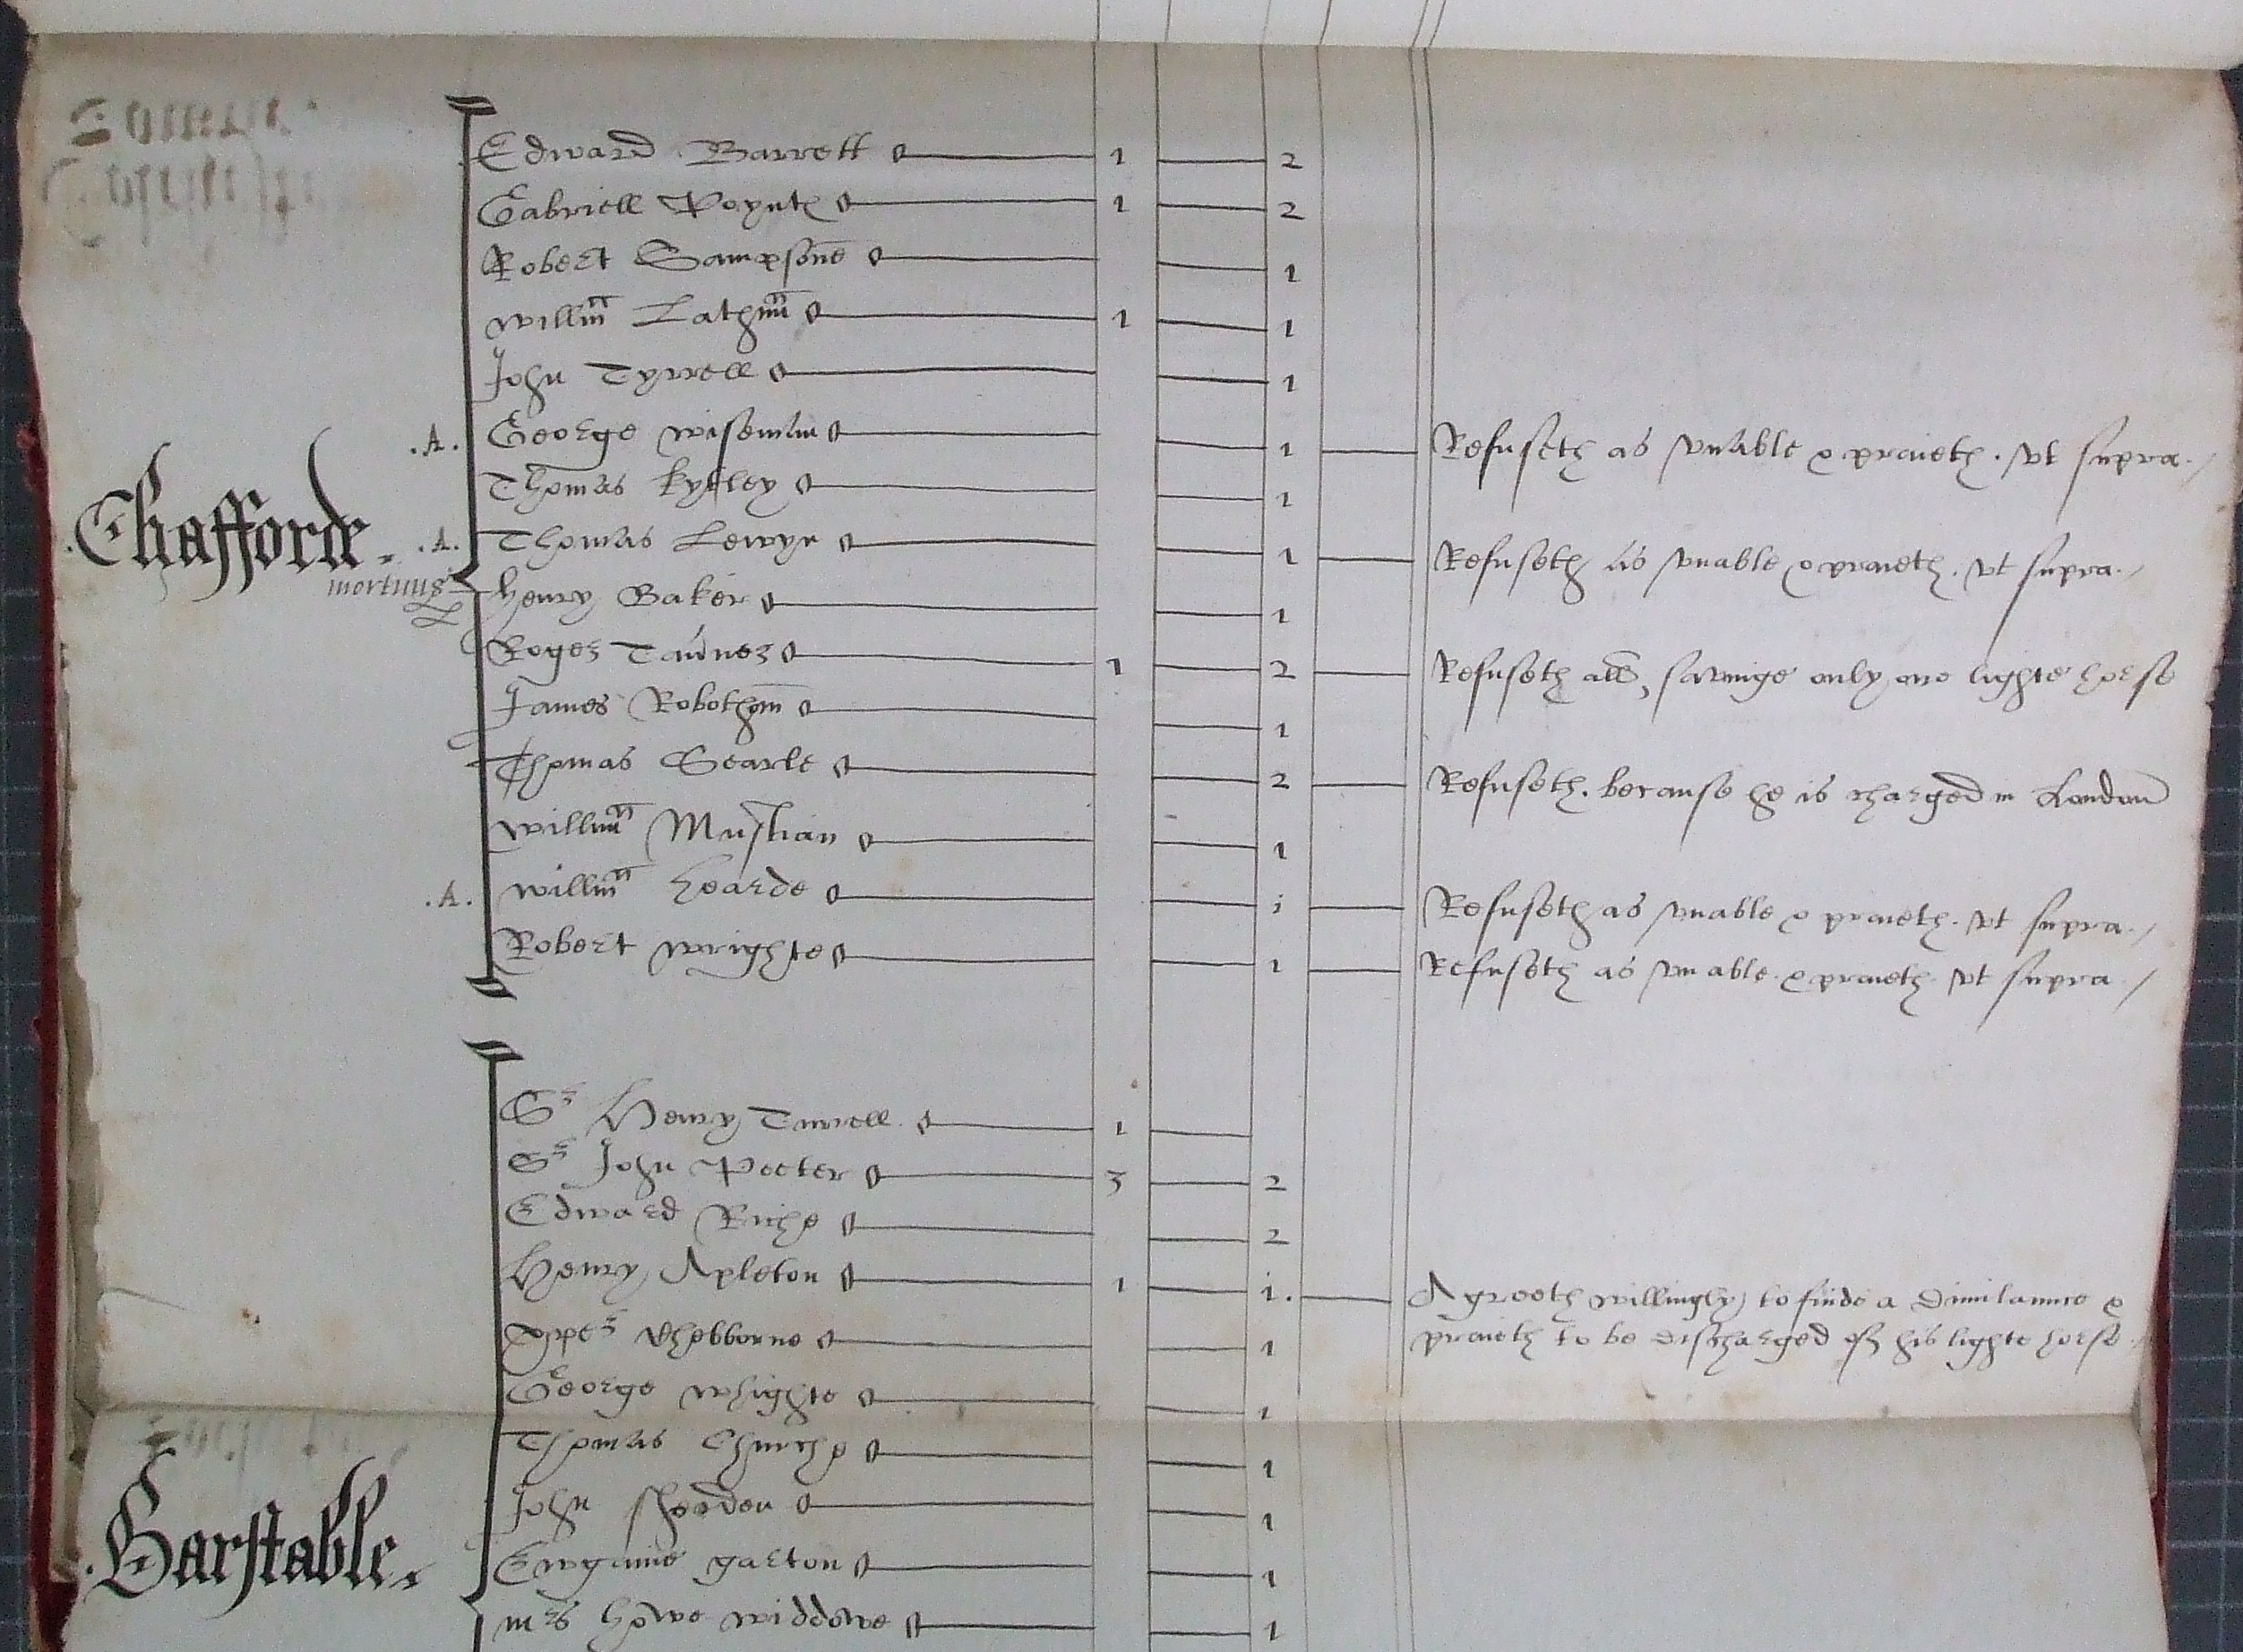 Edward Barrett 1 2
Gabriell Poyntz 1 2
Robert Sampsone 1
Willm Lathm 1 1
John Tyrrell 1
.A. George Wiseman 1 Refuseth as vnable & praieth. vt supra.
Thomas Kyttley 1
Chafforde. .A. Thomas Lewyn 1 Refuseth as vnable & praieth. vt supra.
mortuus Henry Baker 1
Roger Tavner 1 2 Refuseth all, savinge only one lighte horse
James Robothom 1
Thomas Searle 2 Refuseth. because he is charged in London
Willm Mustian 1
.A. Willm Hearde i Refuseth as vnable & praieth. vt supra.
Robert Wrighte 1 Refuseth as vnable & praieth vt supra
Sr Henry Tirrell 1
Sr John Peeter 3 2
Edward Riche 2
Henry Apleton 1 i. Agreeth willingly to finde a dimilaunce &
praieth to be discharged of his lighte horse.
Shebborne 1
George Whighte 1
Thomas Churche 1
John 1
Barstable. garton 1
mrs Howe widdowe 1